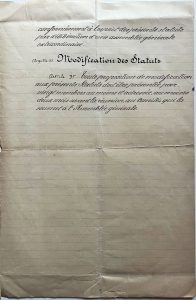 conformément à l'esprit des présents statuts
par décision d'une assemblée générale
extraordinaire.
Chapitre
Modification des Statuts
Article 37. Toute proposition de modification
aux présents Statuts devra être présentée par
vingt membres au moins et adressée, au moins
deux mois avant la réunion, au Comité qui la
soumet à l'Assemblée générale.